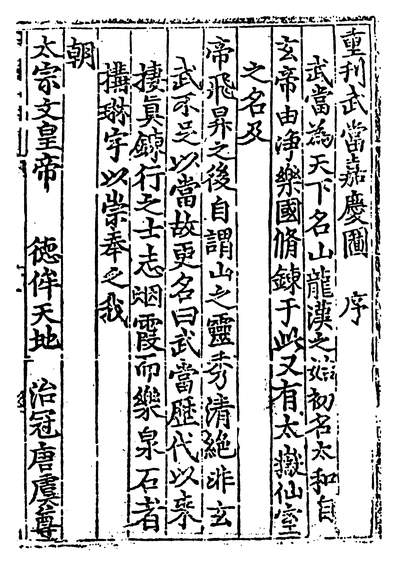 重刊武當嘉慶圖 序
武當為天下名山龍漢之始初名太和自
玄帝由淨樂國脩鍊于此又有太嶽仙室
之名及
帝飛昇之後自謂山之靈秀清絶非玄
武不足以當故更名曰武當歷代以來
棲真鍊行之士志烟霞而樂泉石者
搆琳宇以崇奉之我
朝
太宗文皇帝 德侔天地 治冠唐虞尊